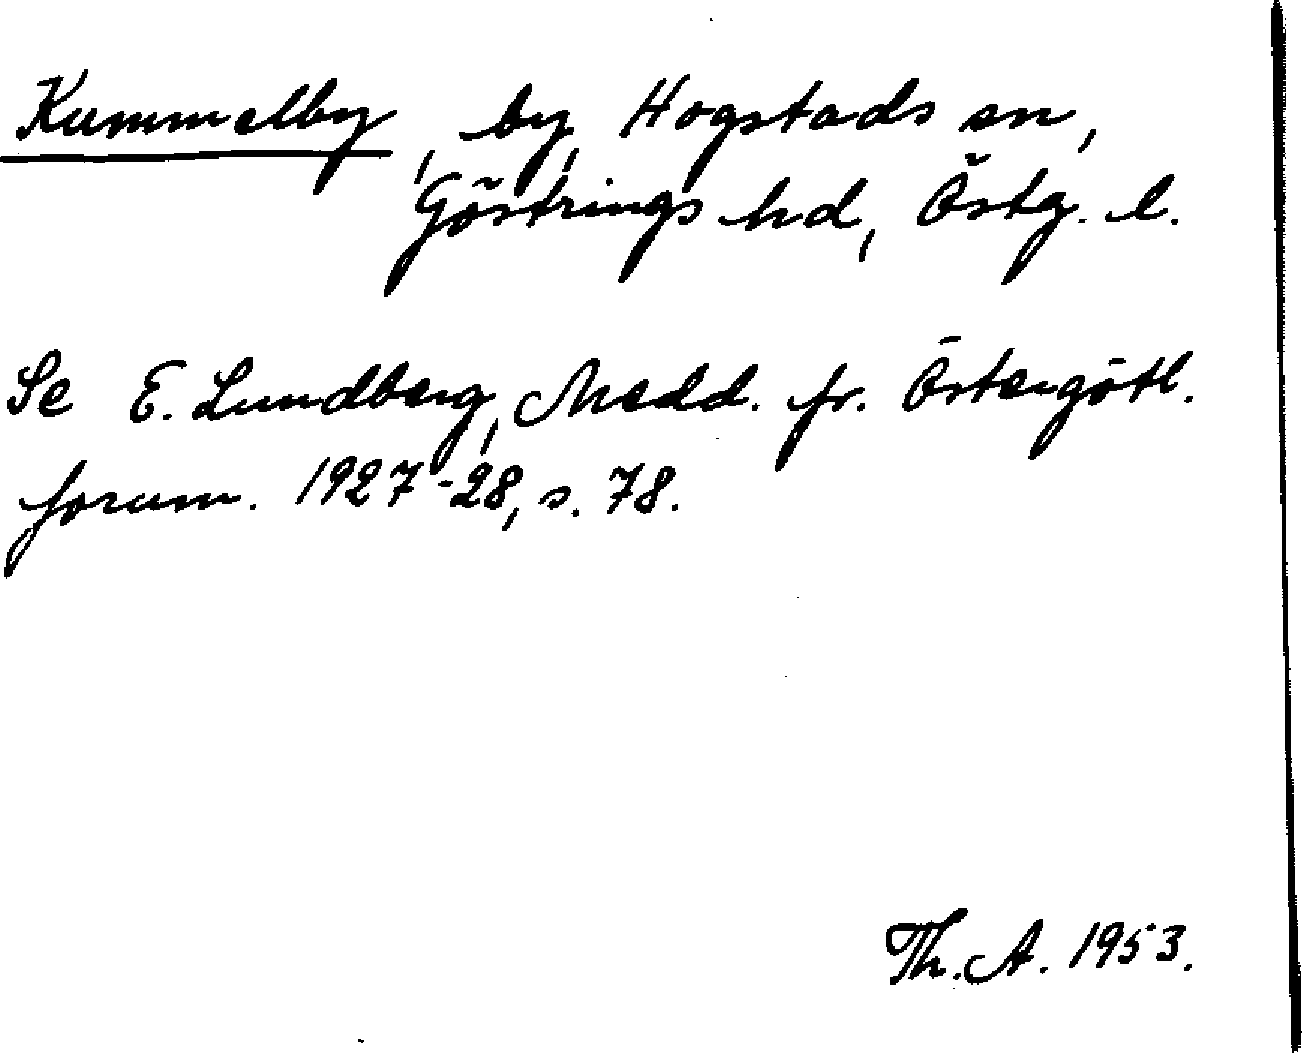 Kummelby, by, Hogstads sn,
Göstrings hd, Östg. l.
Se E. Lundberg, Medd. fr. Östergötl.
fornm. 1927-28, s. 78.
Th. A. 1953.